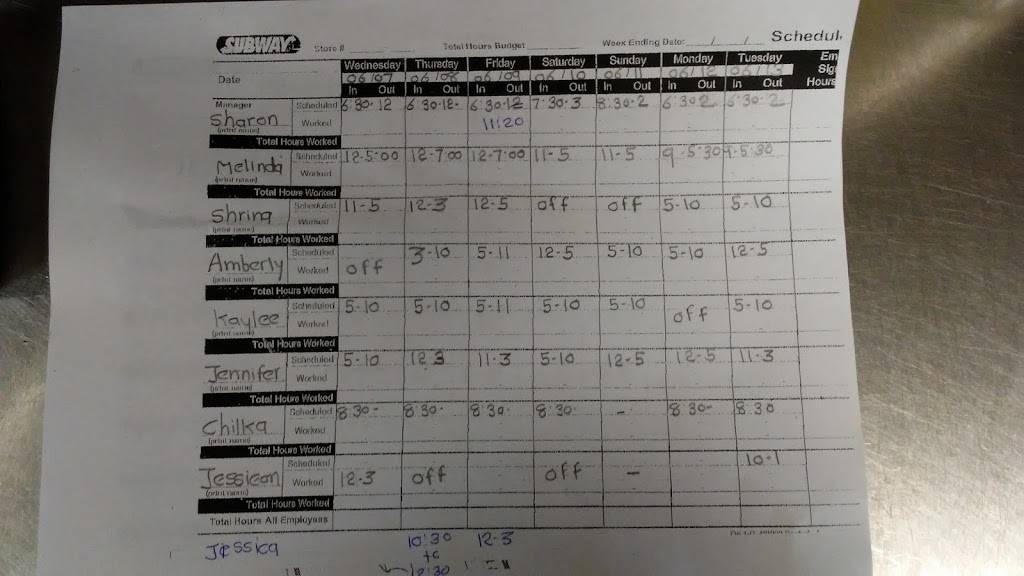 SUBWAY Store # Total Hours Budget Week Ending Date: / / Schedul
Wednesday Thursday Friday Saturday Sunday Monday Tuesday Em
Date 06/07 06/08 06/09 06/10 06/11 06/12 06/13 Sig
In Out In Out In Out In Out In Out In Out In Out Hours
Manager Scheduled 6:30-12 6 30-12- 6:30-12 7:30-3 8:30-2 6:30 2 6:30-2
Sharon Worked 11:20
(print name)
Total Hours Worked
Melinda Scheduled 12-5:00 12-7:00 12-7:00 11-5 11-5 9-5:30 9-5:30
Worked
(print name)
Total Hours Worked
Shring Scheduled 11-5 12-3 12-5 off off 5-10 5-10
Worked
(print name)
Total Hours Worked
Amberly Scheduled 3-10 5-11 12-5 5-10 5-10 12-5
Worked off
(print name)
Total Hours Worked
Kaylee Scheduled 5-10 5-10 5-11 5-10 5-10 5-10
Worked off
(print name)
Total Hours Worked
Jennifer Scheduled 5-10 12 3 11-3 5-10 12-5 12-5 11-3
Worked
(print name)
Total Hours Worked
Chilka Scheduled 8:30- 8:30- 8:30- 8:30- - 8 30- 8:30
Worked
(print name)
Total Hours Worked
Scheduled 10-1
Jessican Worked 12-3 off off -
(print name)
Total Hours Worked
Total Hours All Employees
Jessica 10:30 12-3
to
12:30